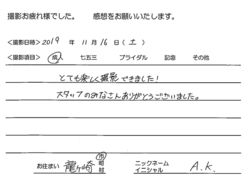 撮影お疲れ様でした。 感想をお願いいたします。
<撮影日時> 2019 年 11 月 16 日 ( 土 )
<撮影項目> 成人 七五三 ブライダル 記念 その他
とても楽しく撮影できました!
スタッフのみなさんありがとうございました。
お住まい 龍ヶ崎 市 町 村 ニックネーム イニシャル A.K.